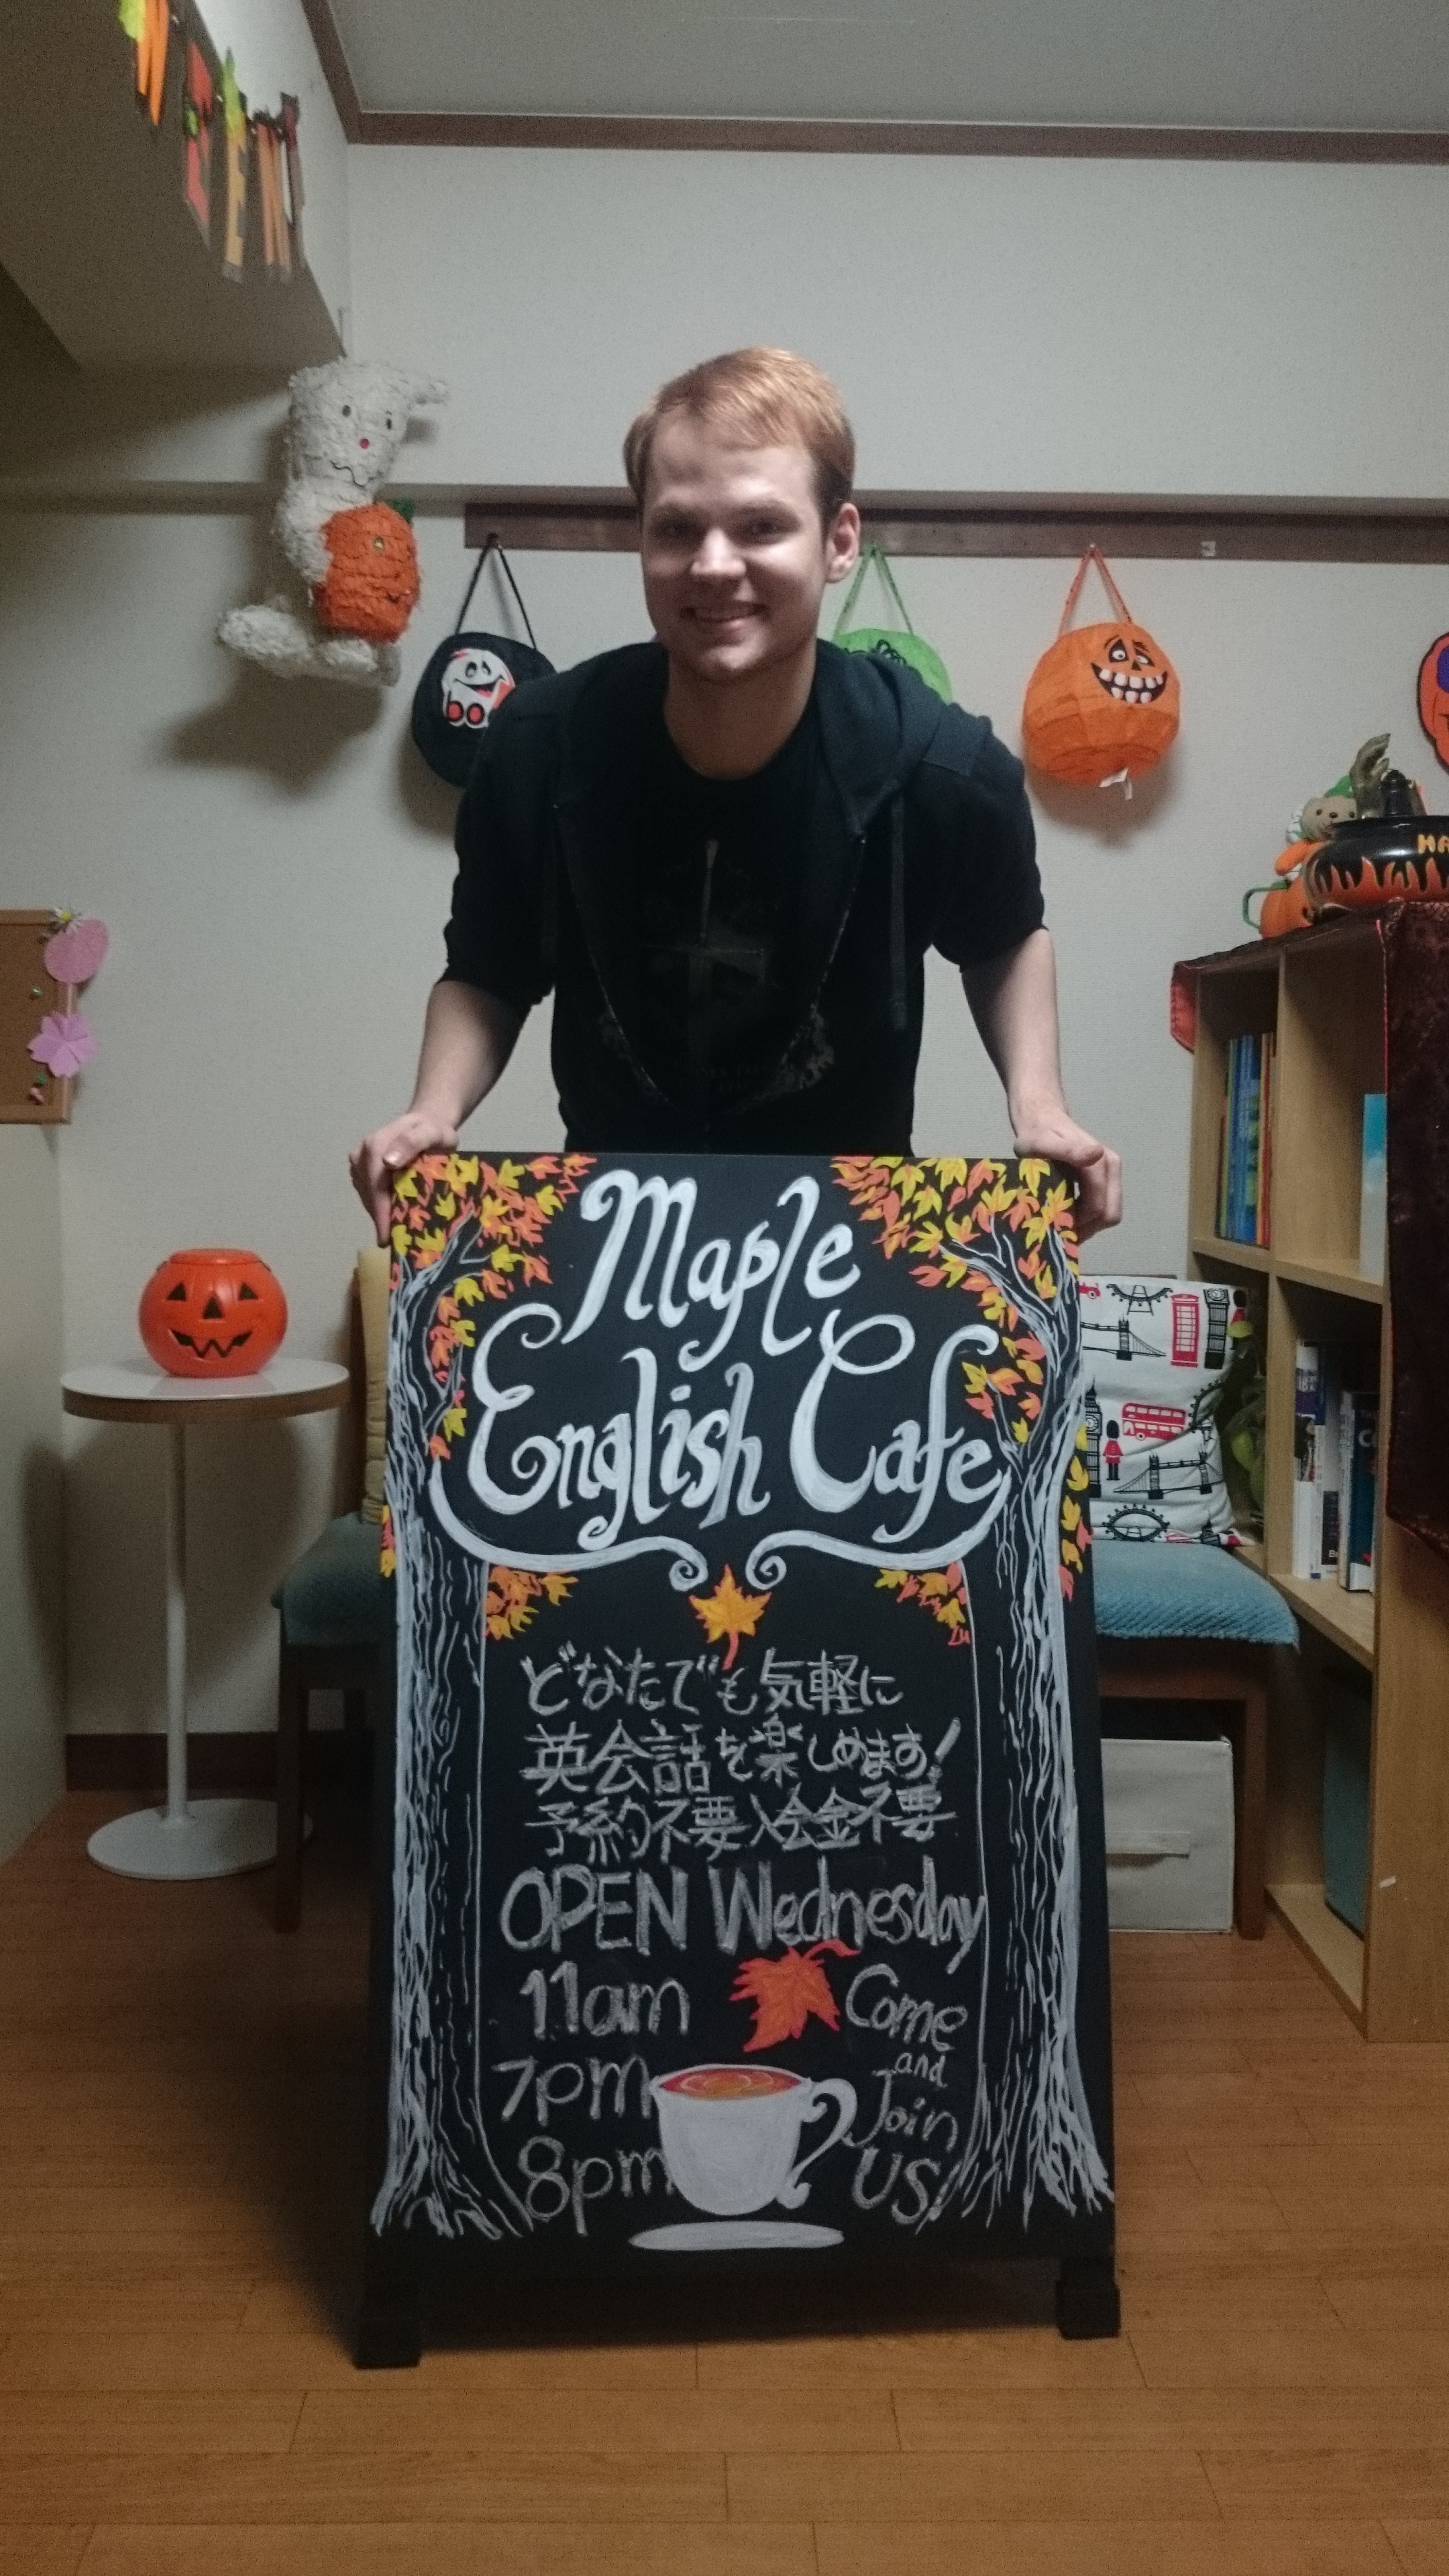 Maple
English Cafe
LH
どなたでも気軽に
英会話を楽しめます!
予約不要入会金不要
OPEN Wednesday
11am
7pm
8pm
Come
and
Join
US!
boo
HA